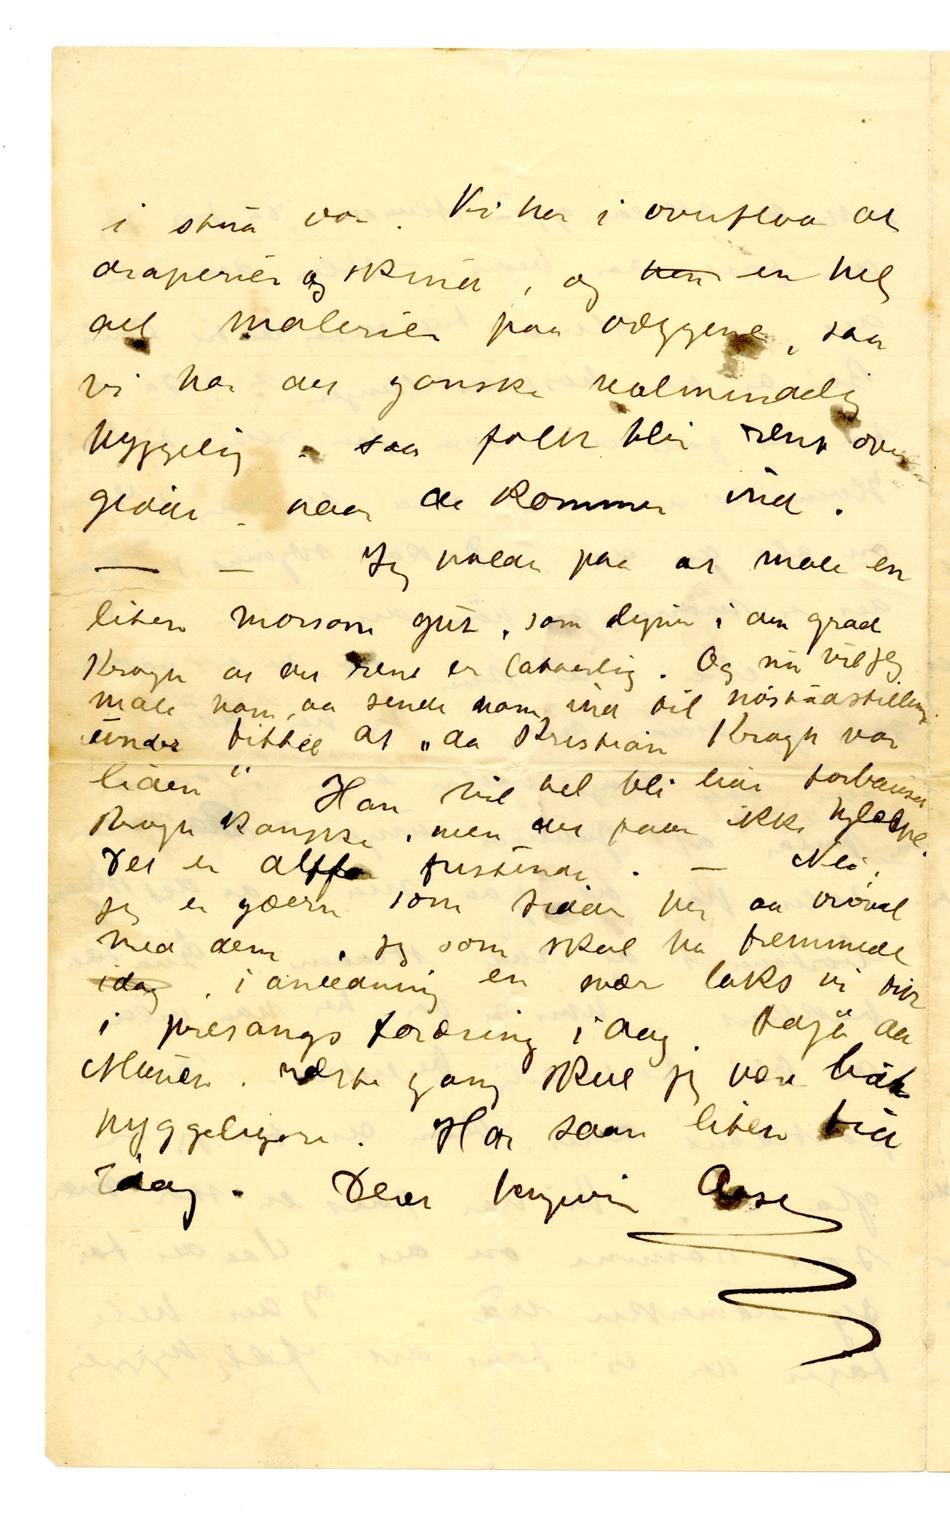 i stua vor. Vi har i overflod at
draperier og skind, og <del>hen</del> en hel
del malerier paa væggene, saa
vi har det ganske ualmindelig
hyggelig. saa folk blir rent over
gidde. naar de kommer ind.
— — Jeg holder paa at male en
liten morsom gut, som ligner i den grad
Krogh at det rene er latterlig. Og nu vil jeg
male ham, aa sende ham ind til høstudstilling
under tittel at "da Kristian Krogh var
liden" Han vil vel bli litt forbauset
Krogh kanske, men det faar ikke hjelpe.
Det er altfor fristende. — Nei,
jeg er gæern som sidder her aa vrøvel
med dem, jeg som skal ha fremmede
<del>idag</del>, i anledning en svær laks vi fik
i presangs foræring i dag. Adjø da
Munch. næste gang skal jeg være lidt
hyggeligere. Har saan liten tid
idag. Deres hengivne Aase